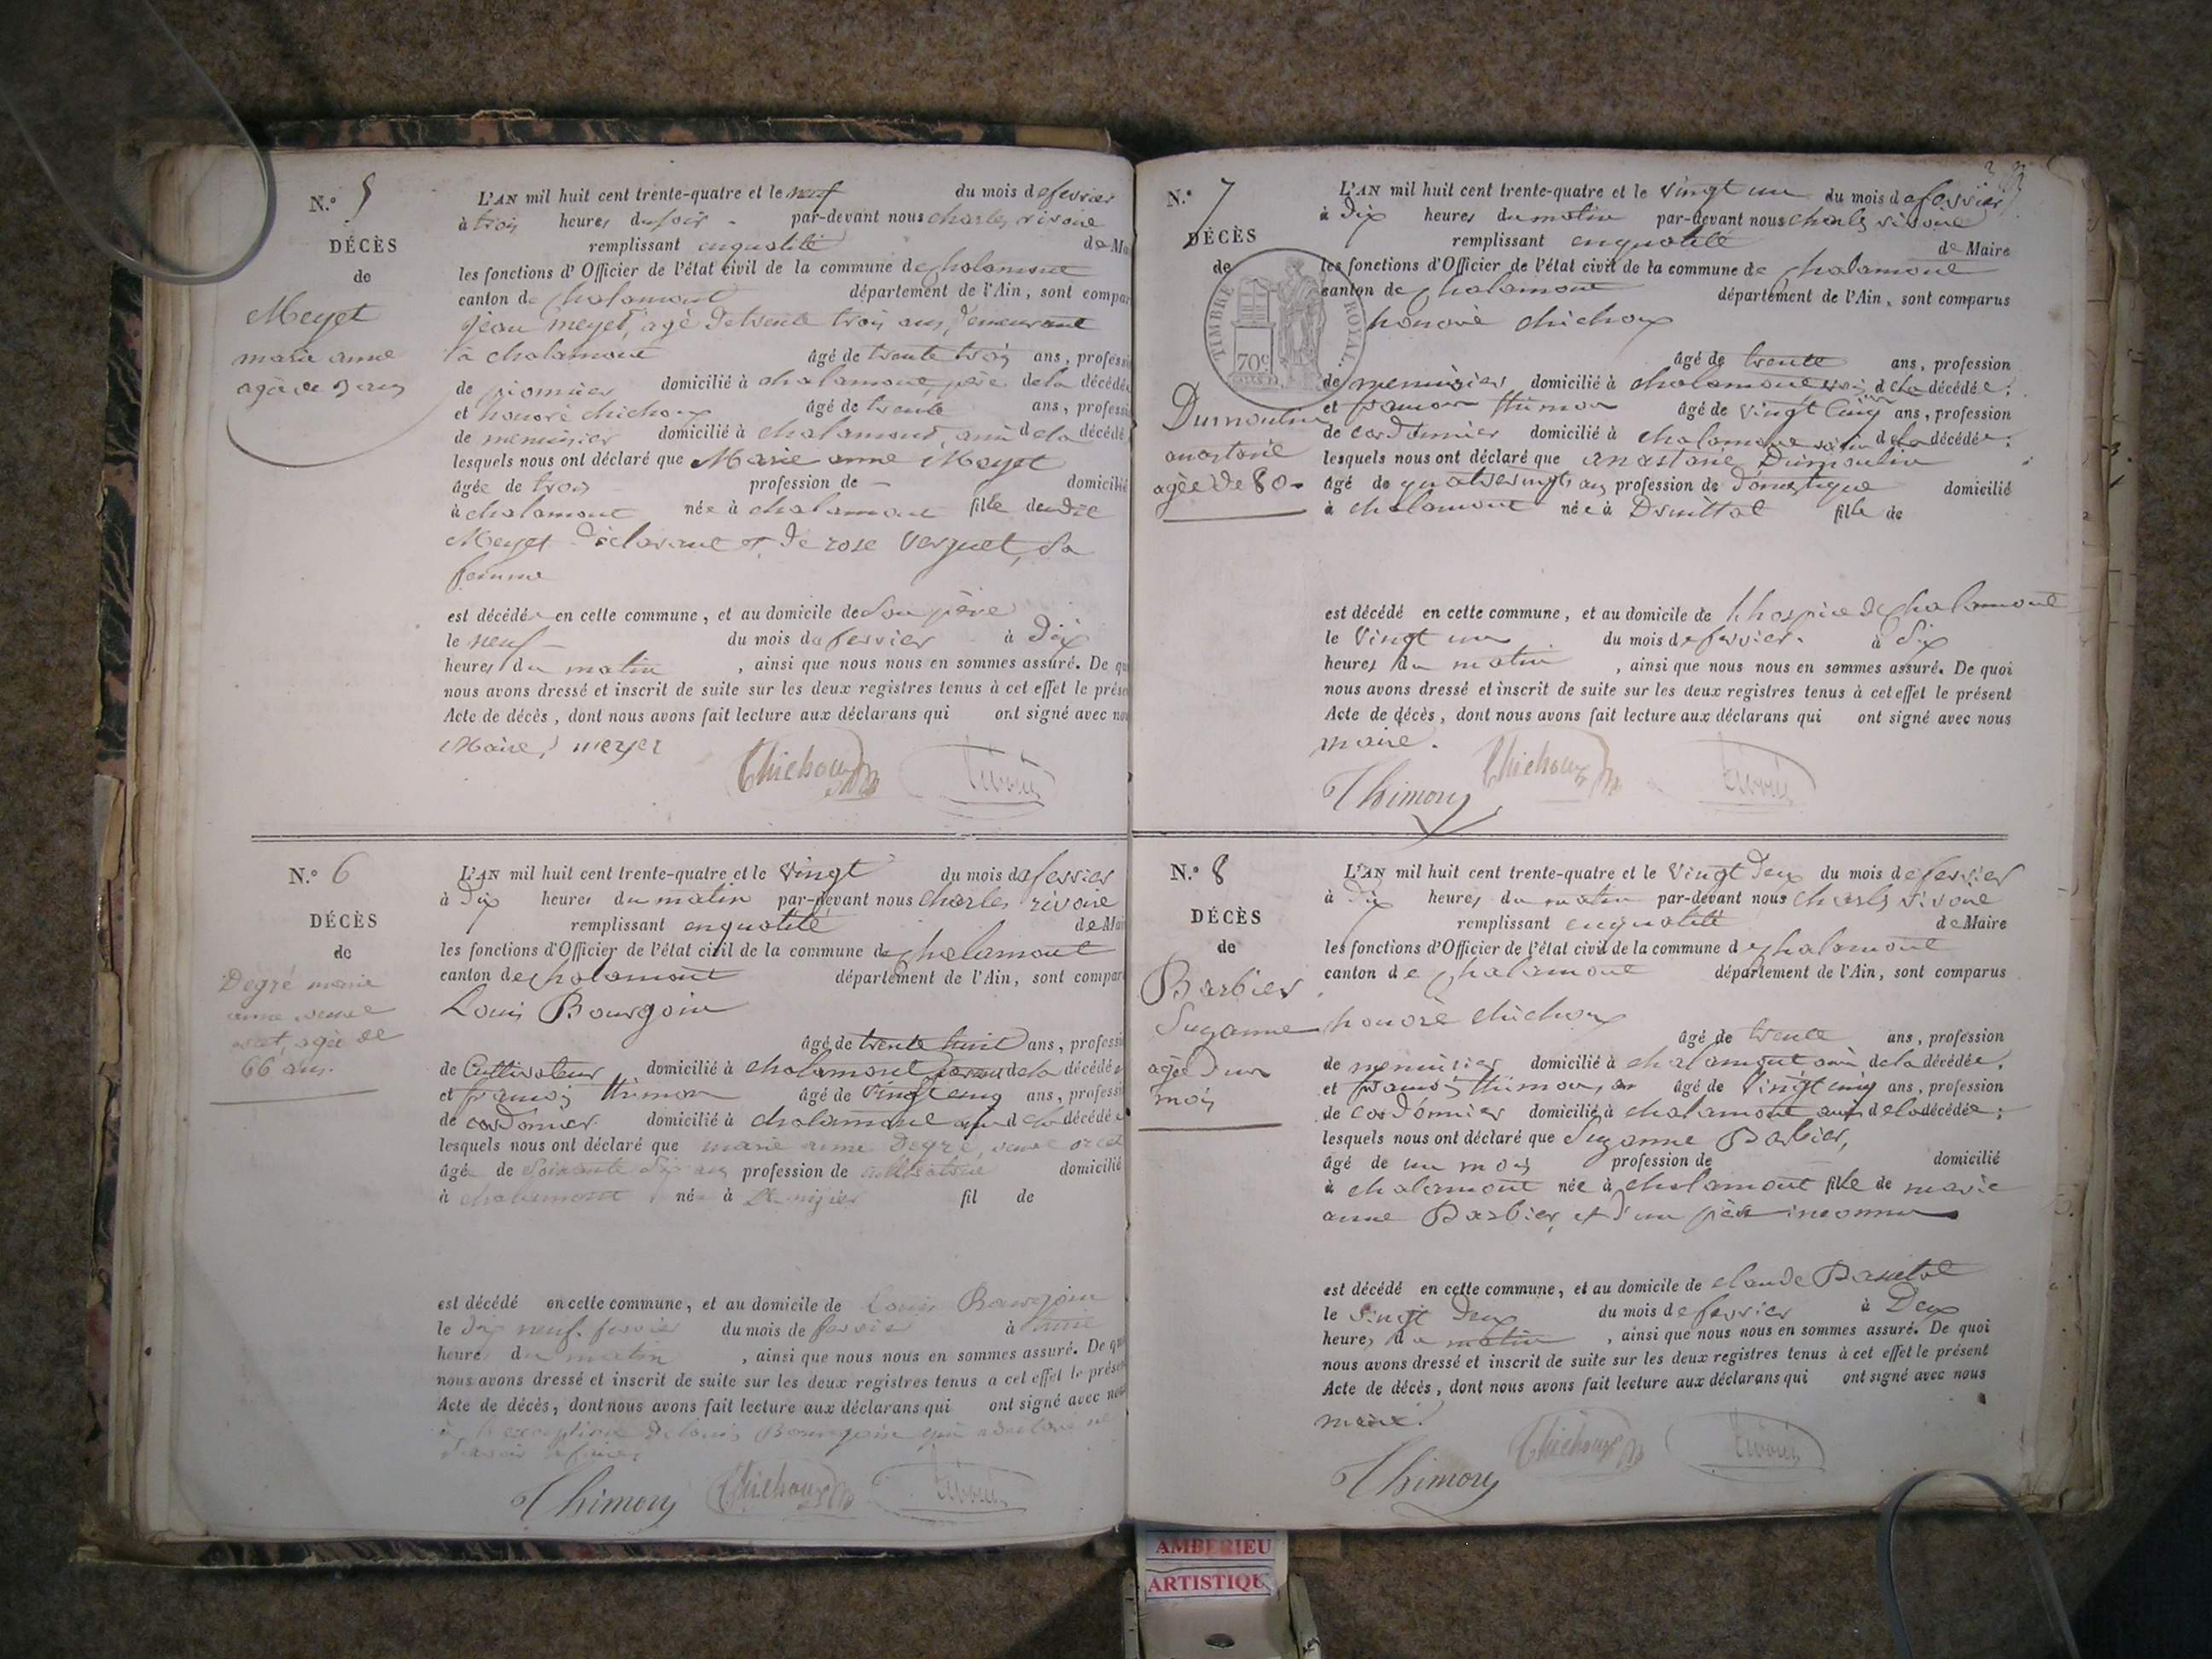 N.° 5
DÉCÈS
de
Meyet
marie anne
agée de 3 ans
L'AN mil huit cent trente-quatre et le neuf du mois de fevrier
à trois heures du soir - par-devant nous charles rivoire
remplissant en qualité de Ma
les fonctions d'Officier de l'état civil de la commune de chalamont
canton de chalamont département de l'Ain, sont compar
jean meyet, agé de trente trois ans, demeurant
à chalamont âgé de trente trois ans, professi
de pionnier domicilié à chalamont, père de la décédée
et honoré chichoux âgé de trente ans, professi
de menuisier domicilié à chalamont, ami de la décédé
lesquels nous ont déclaré que Marie anne Meyet
âgée de trois profession de - domicilié
à chalamont née à chalamont fille de
Meyet déclarant et de rose Verguet, sa
femme
est décédée en cette commune, et au domicile de son père
le neuf - du mois de fevrier à dix
heures du matin, ainsi que nous nous en sommes assuré. De qu
nous avons dressé et inscrit de suite sur les deux registres tenus à cet effet le prése
Acte de décès, dont nous avons fait lecture aux déclarans qui ont signé avec nou
Maire, meyet
Chichoux rivoire
N.° 6
DÉCÈS
de
Degré marie
anne veuve
orset, agée de
66 ans.
L'AN mil huit cent trente-quatre et le Vingt du mois de fevrier
à dix heures du matin par-devant nous charles rivoire
remplissant en qualité de Mai
les fonctions d'Officier de l'état civil de la commune de chalamont
canton de chalamont département de l'Ain, sont compar
Louis Bourgoin
âgé de trente huit ans, professi
de Cultivateur domicilié à chalamont de la décédée
et françois thimon âgé de Vingt cinq ans, professi
de cordonnier domicilié à chalamont ami de la décédée
lesquels nous ont déclaré que marie anne Degré, veuve
âgée de Soixante Six ans profession de domicilié
à chalamont née à St. nizier fil de
est décédé en cette commune, et au domicile de Louis Bourgoin
le dix neuf. fevrier du mois de fevrier à
heure du matin, ainsi que nous nous en sommes assuré. De qu
nous avons dressé et inscrit de suite sur les deux registres tenus a cet effet le présen
Acte de décès, dont nous avons fait lecture aux déclarans qui ont signé avec nou
à l'exception de louis Bourgoin qui a déclaré ne
Thimon Chichoux rivoire
N.° 7
DÉCÈS
de
TIMBRE ROYAL
70c
Dumoulin
anastasie
agée de 80 -
L'AN mil huit cent trente-quatre et le Vingt un du mois de fevrier
à dix heures du matin par-devant nous charles rivoire
remplissant en qualité de Maire
les fonctions d'Officier de l'état civil de la commune de chalamont
canton de chalamont département de l'Ain, sont comparus
honoré chichoux
âgé de trente ans, profession
de menuisier domicilié à chalamont de la décédée;
et françois thimon âgé de Vingt Cinq ans, profession
de cordonnier domicilié à chalamont de la décédée;
lesquels nous ont déclaré que anastasie Dumoulin
âgé de quatrevingts ans profession de domestique domicilié
à chalamont née à Druillat fille de
est décédé en cette commune, et au domicile de l'hospice de chalamont
le Vingt un du mois de fevrier. à Six
heures du matin, ainsi que nous nous en sommes assuré. De quoi
nous avons dressé et inscrit de suite sur les deux registres tenus à cet effet le présent
Acte de décès, dont nous avons fait lecture aux déclarans qui ont signé avec nous
maire.
Thimon Chichoux rivoire
N.° 8
DÉCÈS
de
Barbier
Suzanne
agée d'un
mois
L'AN mil huit cent trente-quatre et le Vingt deux du mois de fevrier
à dix heures du matin par-devant nous charles rivoire
remplissant en qualité de Maire
les fonctions d'Officier de l'état civil de la commune de chalamont
canton de chalamont département de l'Ain, sont comparus
honoré chichoux
âgé de trente ans, profession
de menuisier domicilié à chalamont ami de la décédée.
et françois thimon, âgé de Vingt cinq ans, profession
de cordonnier domicilié à chalamont ami de la décédée;
lesquels nous ont déclaré que Suzanne Barbier,
âgé de un mois profession de domicilié
à chalamont née à chalamont fille de marie
anne Barbier, et d'un père inconnu
est décédé en cette commune, et au domicile de claude
le Vingt Deux du mois de fevrier à Deux
heures du matin, ainsi que nous nous en sommes assuré. De quoi
nous avons dressé et inscrit de suite sur les deux registres tenus à cet effet le présent
Acte de décès, dont nous avons fait lecture aux déclarans qui ont signé avec nous
maire.
Thimon Chichoux rivoire
AMBERIEU
ARTISTIQU